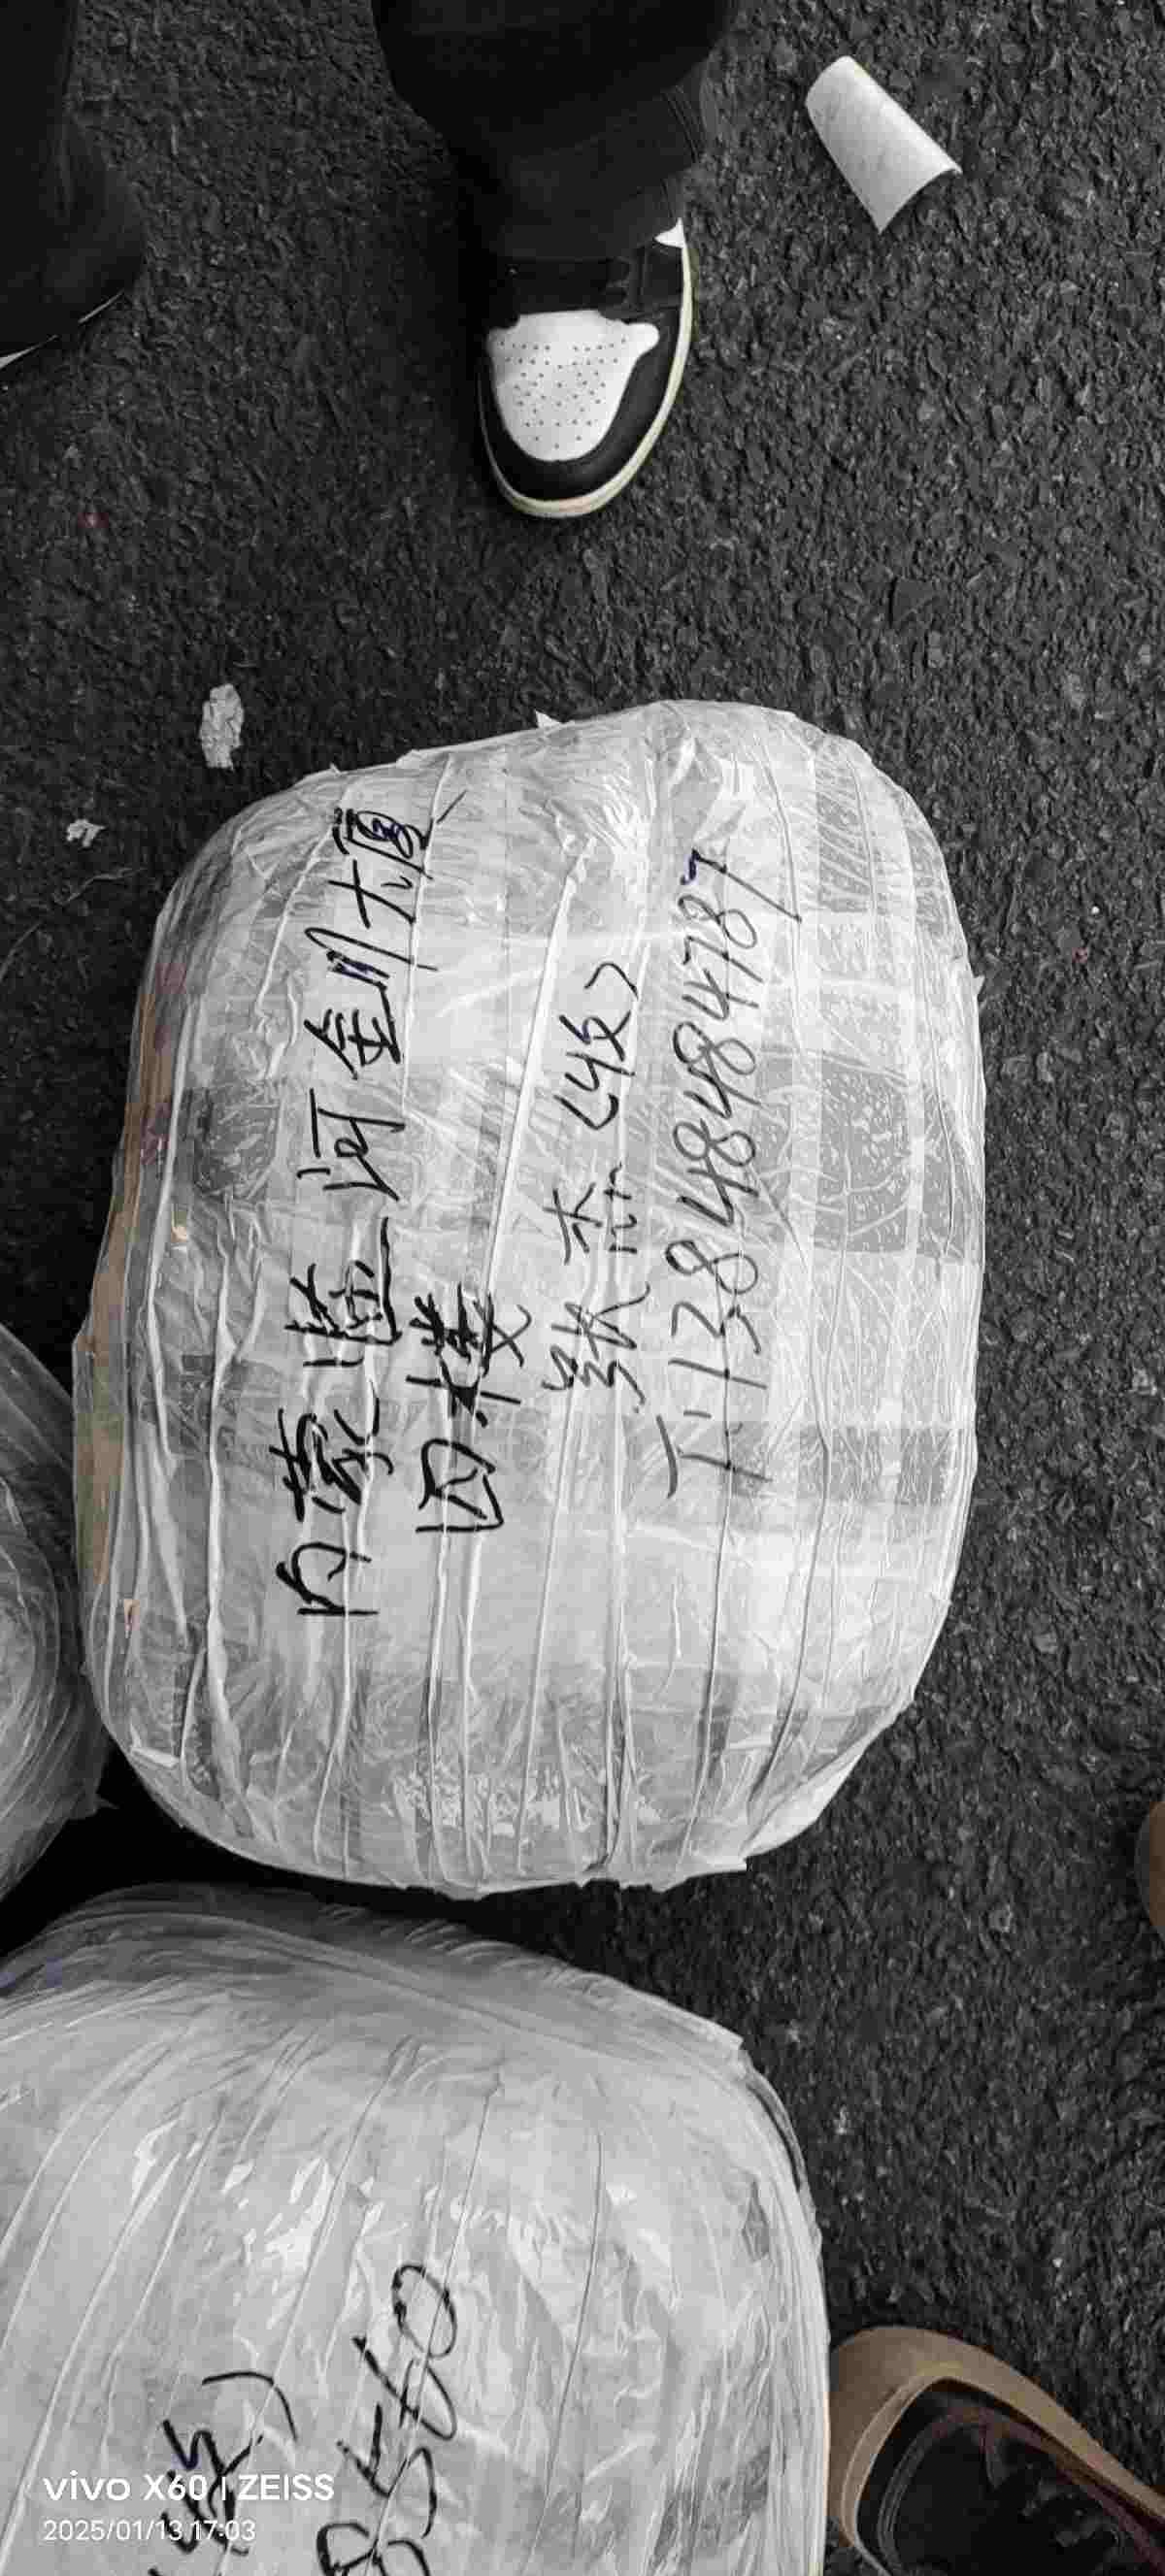 内蒙临河金川大厦
四楼
张杰（收）
T:13848484787
收）
8560
vivo X60 | ZEISS
2025/01/13 17:03